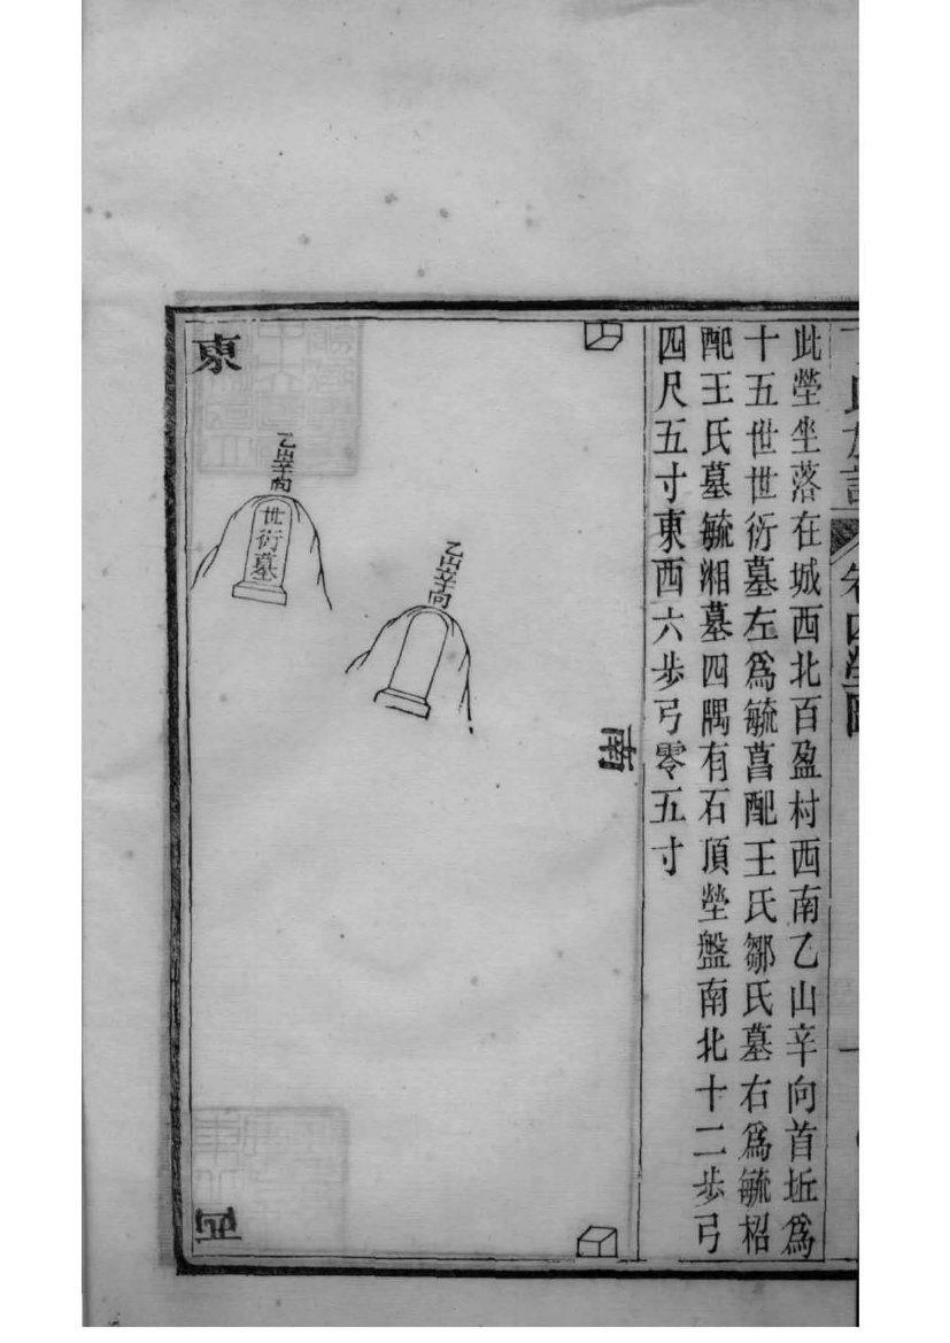 卷四塋圖
此塋坐落在城西北百盈村西南乙山辛向首坵爲
十五世世衍墓左爲毓菖配王氏鄒氏墓右爲毓柖
配王氏墓毓湘墓四隅有石頂塋盤南北十二步弓
四尺五寸東西六步弓零五寸
南
乙山辛向
乙山辛向
世衍墓
東